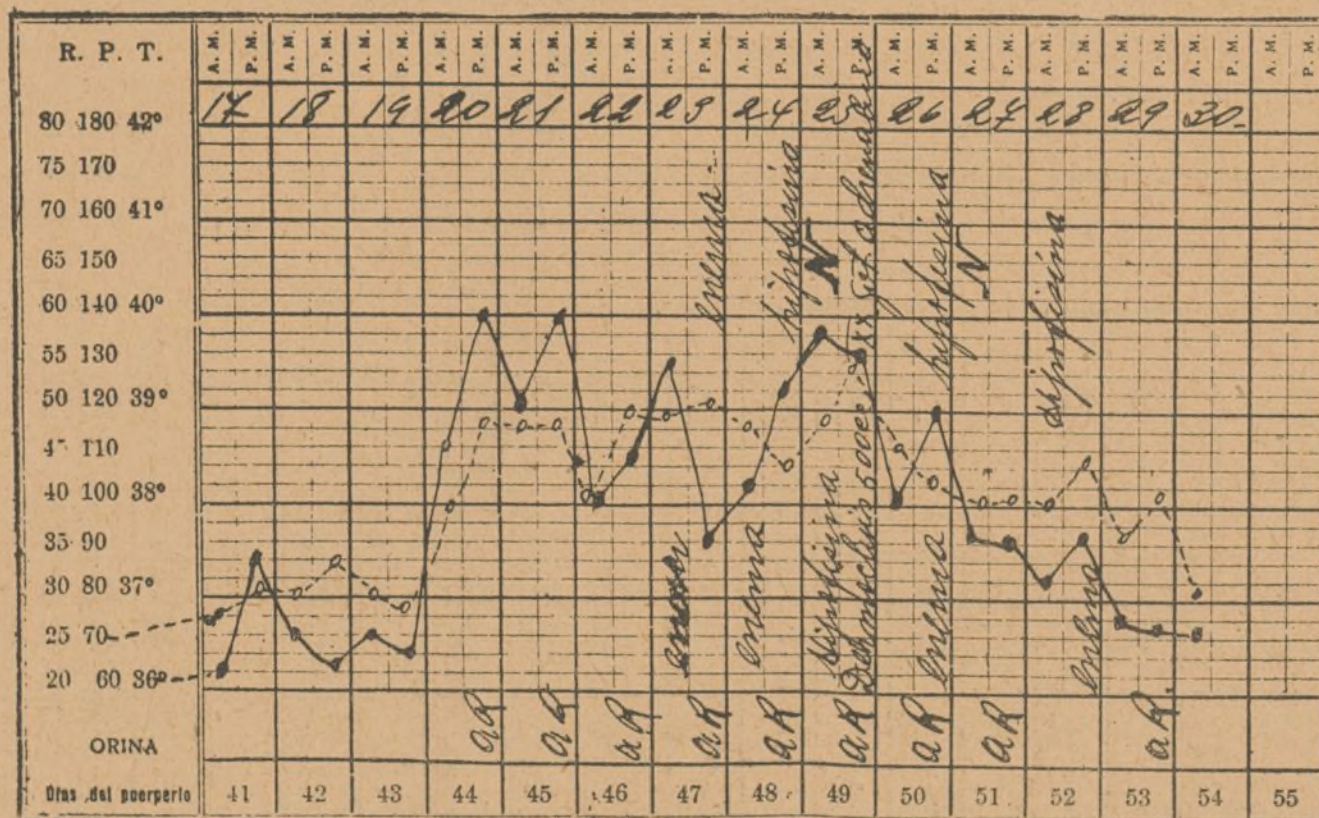 R. P. T. A. M. P. M. A. M. P. M. A. M. P. M. A. M. P. M. A. M. P. M. A. M. P. M. A. M. P. M. A. M. P. M. A. M. P. M. A. M. P. M. A. M. P. M. A. M. P. M. A. M. P. M. A. M. P. M. A. M. P. M.
80 180 42° 17 18 19 20 21 22 23 24 25 26 27 28 29 30
75 170
70 160 41°
65 150
60 140 40°
55 130
50 120 39°
45 110
40 100 38°
35 90
30 80 37°
25 70
20 60 36°
enema
hipofisina
N
hipofisina
N
hipofisina
enema
enema
hipofisina
enema
enema
a R a R a R a R a R a R a R a R a R
ORINA
Días del puerperio 41 42 43 44 45 46 47 48 49 50 51 52 53 54 55